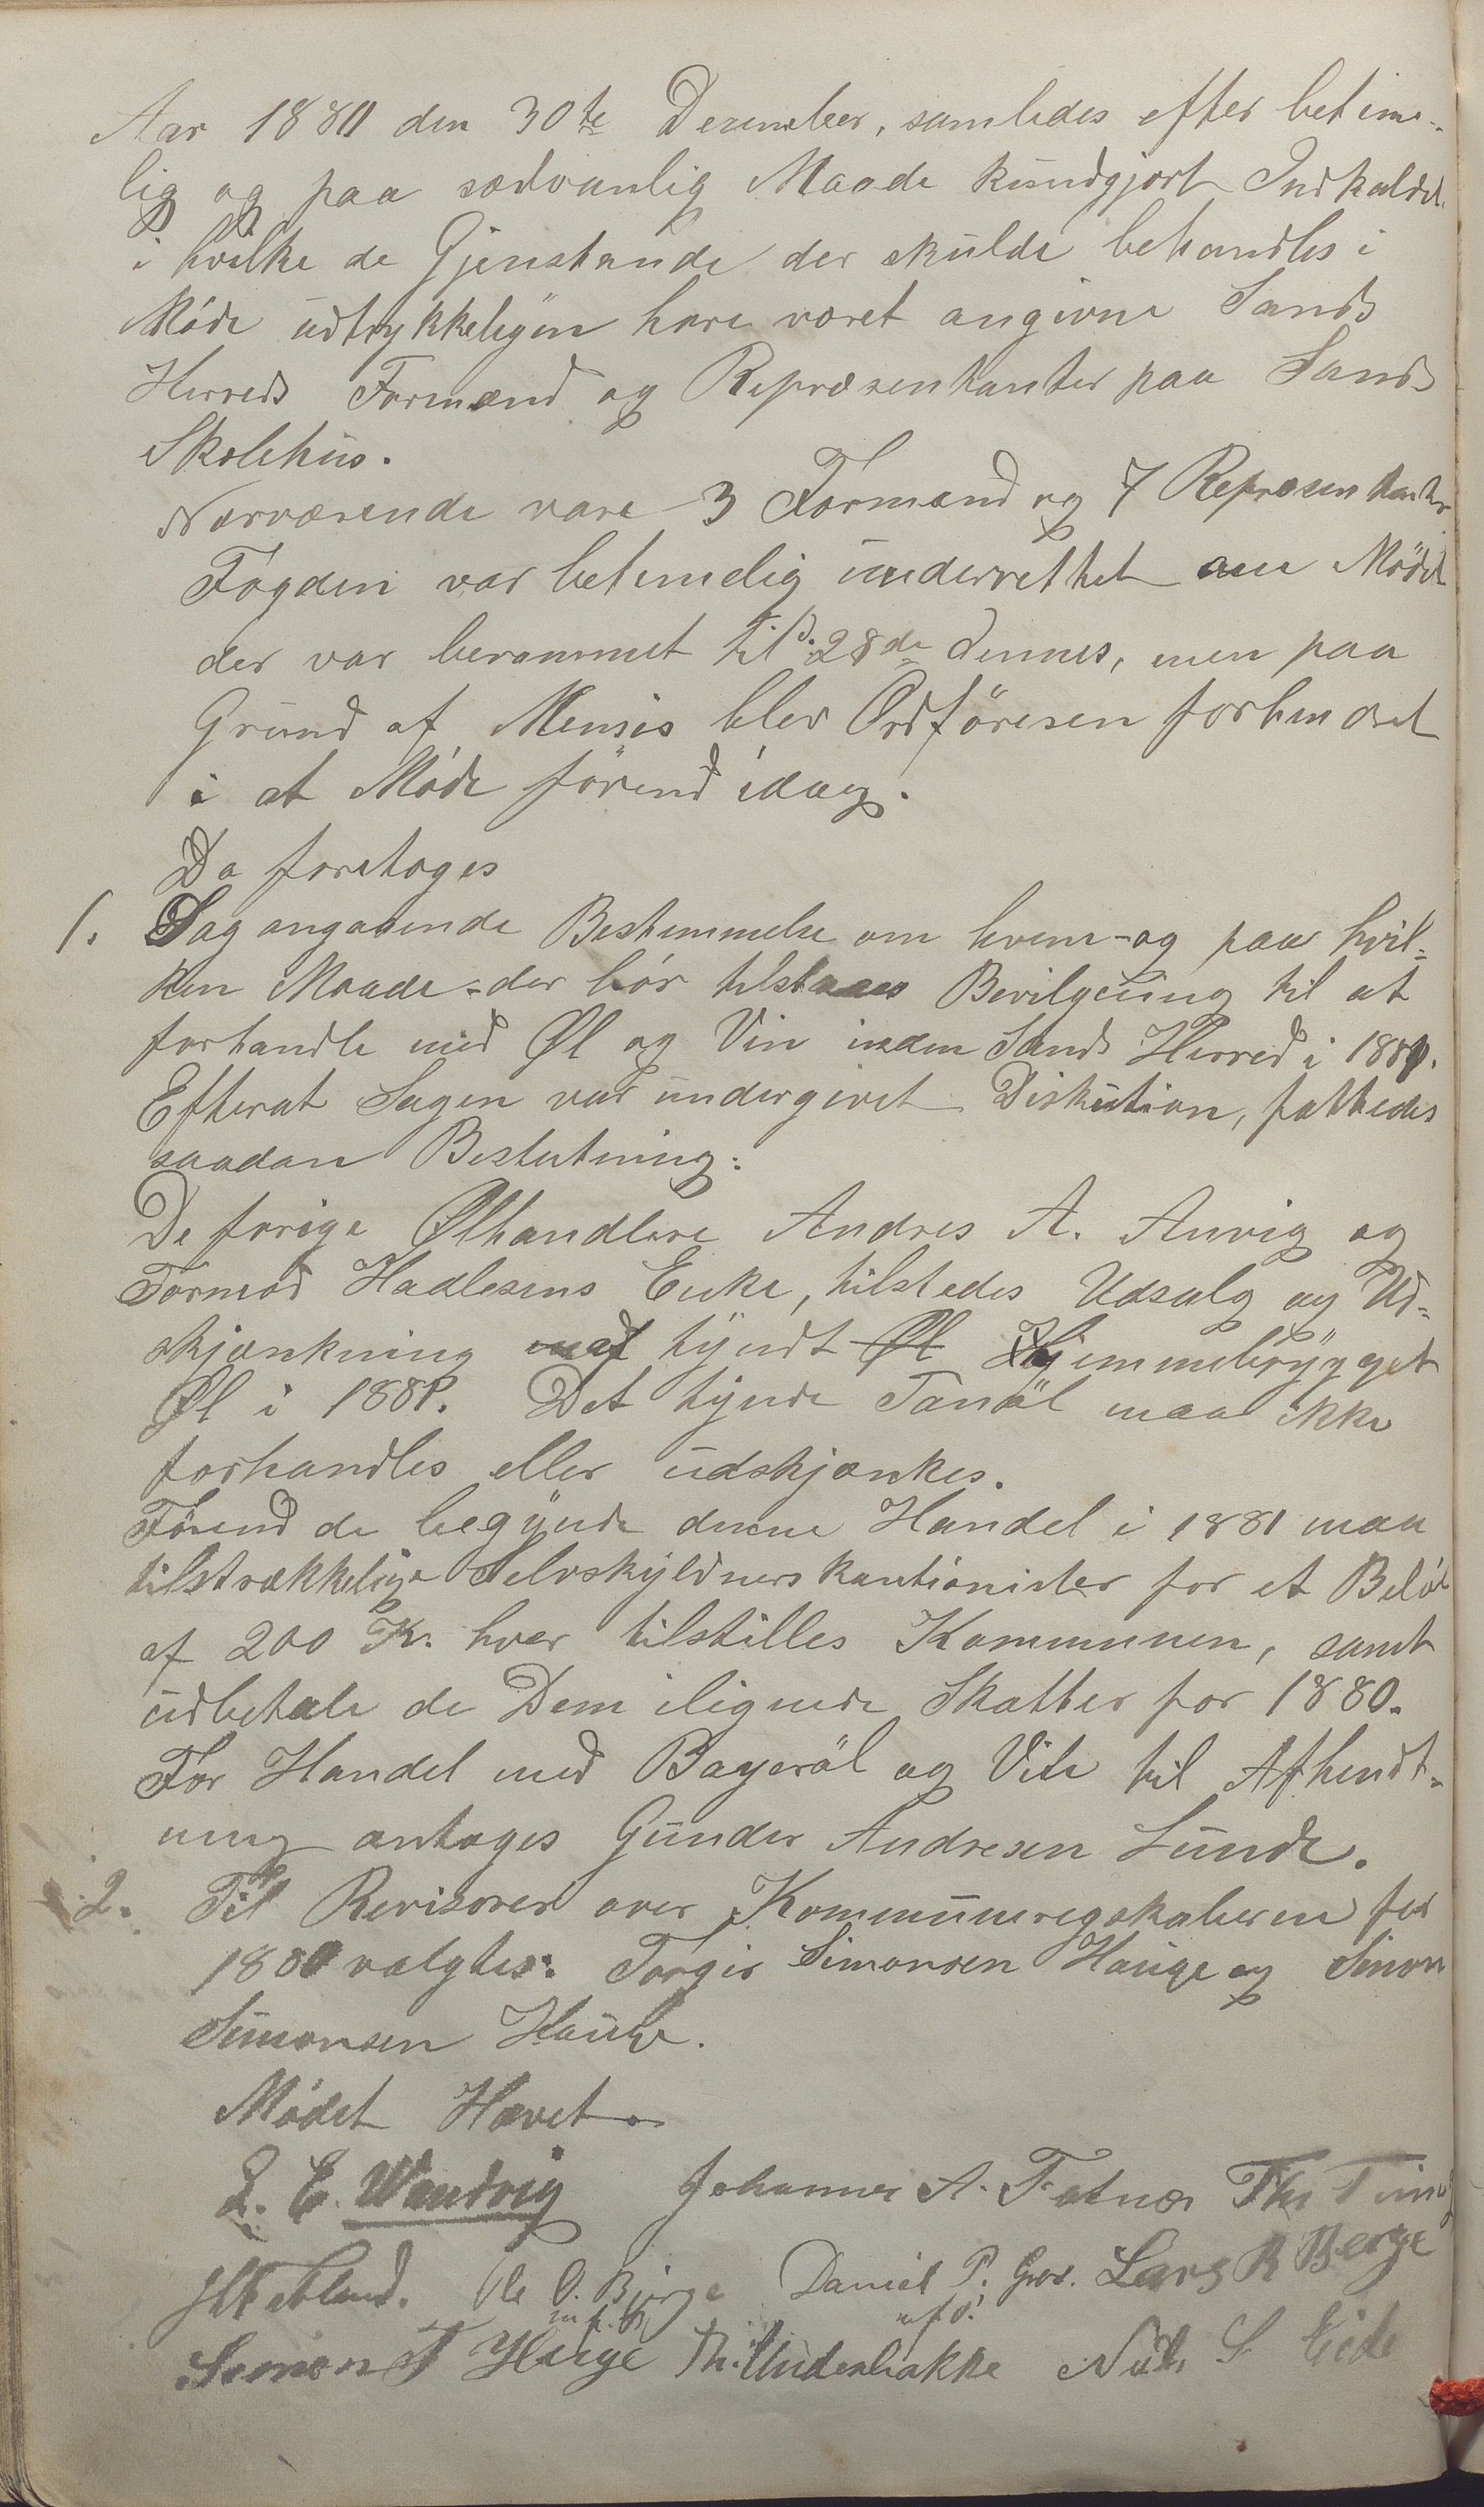 Aar 1880 den 30te Dezember, samledes efter betime-
lig og paa sædvanlig Maade kundgjort Indkaldel.
i hvilke de Gjenstande der skulde behandles i
Møde udtrykkeligen have været angivne Sands
Herreds Formænd og Repræsentanter paa Sands
Skolehus.
Nærværende vare 3 Formænd og 7 Repræsentanter
Fogden var betimelig underrettet om Mødet
der var berammet til d. 28de dennes, men paa
Grund af Menies blev Ordføreren forhindret
i at Møde førend idag.
Da foretoges
1. Sag angaaende Bestemmelse om hvem - og paa hvil-
ken Maade - der bør tilstaaes Bevilgning til at
forhandle med Øl og Vin inden Sands Herred i 1881.
Efterat Sagen var undergivet Diskution, fattedes
saadan Beslutning:
De forige Ølhandlere Andres A. Anvig og
Tormod Hadlesens Enke, tilstedes Udsalg og Ud-
skjænkning af tyndt Øl Hjemmebrygget
Øl i 1881. Det tynde Tanøl maa ikke
forhandles eller udskjænkes.
Førend de begynde denne Handel i 1881 maa
tilstrækkelige Selvskyldnerskautionister for et Beløb
af 200 Kr. hver tilstilles Kommunen, samt
udbetale de Dem ilignede Skatter for 1880.
For Handel med Bayerøl og Vin til Afhendt-
ning antoges Gunder Andresen Lunde.
2. Til Revisorer over Kommuneregskaberne for
1880 valgtes: Torgis Simonsen Hauge og Simon
Simonsen Hauge.
Mødet Hævet
L. E. Wandvig Johannes A. Fatnæs
Ole O. Bjorge Daniel P. Lars R Berge
m. f. P.
Simon T Hauge Th. Underbakke S. Eide